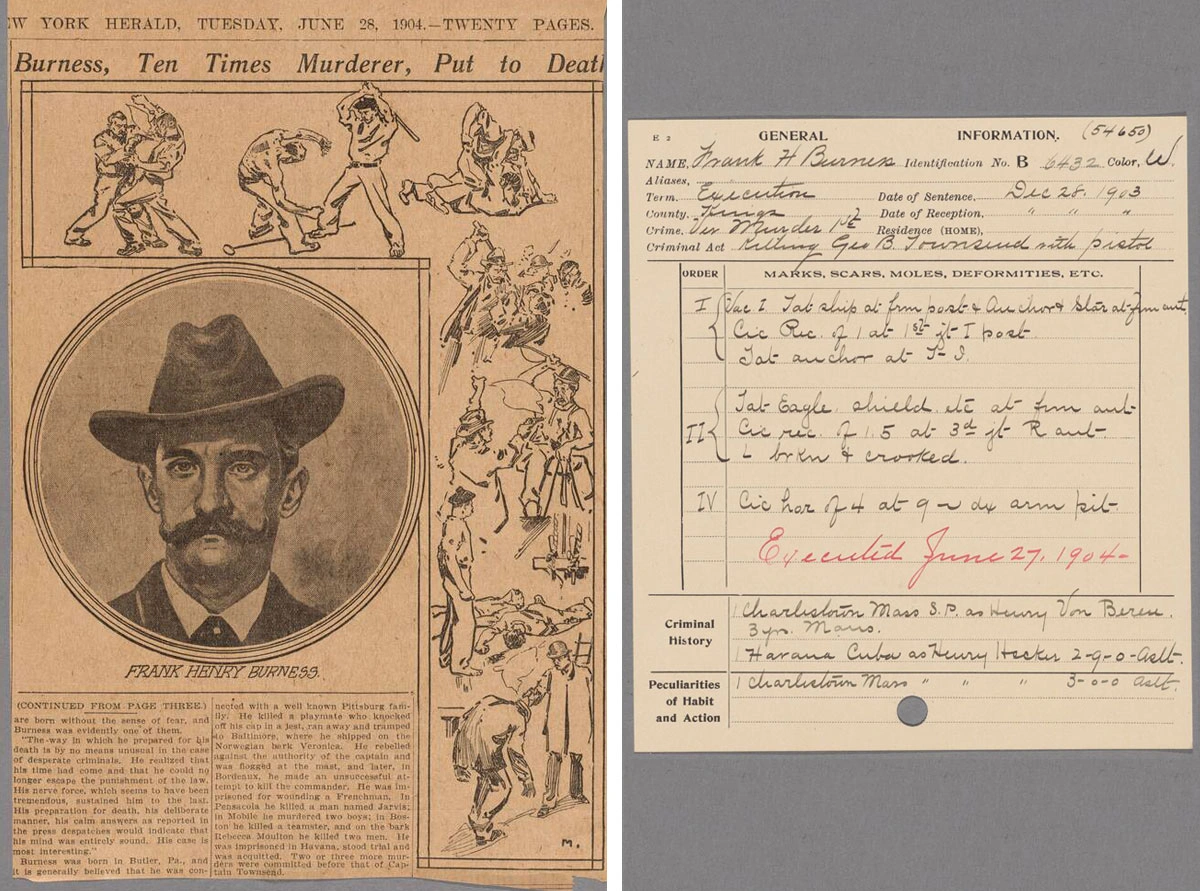 EW YORK HERALD, TUESDAY, JUNE 28, 1904.—TWENTY PAGES.
Burness, Ten Times Murderer, Put to Death
FRANK HENRY BURNESS.
(CONTINUED FROM PAGE THREE.)
are born without the sense of fear, and
Burness was evidently one of them.
"The way in which he prepared for his
death is by no means unusual in the case
of desperate criminals. He realized that
his time had come and that he could no
longer escape the punishment of the law.
His nerve force, which seems to have been
tremendous, sustained him to the last.
His preparation for death, his deliberate
manner, his calm answers as reported in
the press despatches would indicate that
his mind was entirely sound. His case is
most interesting."
Burness was born in Butler, Pa., and
it is generally believed that he was con-
nected with a well known Pittsburg fam-
ily. He killed a playmate who knocked
off his cap in a jest, ran away and tramped
to Baltimore, where he shipped on the
Norwegian bark Veronica. He rebelled
against the authority of the captain and
was flogged at the mast, and later, in
Bordeaux, he made an unsuccessful at-
tempt to kill the commander. He was im-
prisoned for wounding a Frenchman. In
Pensacola he killed a man named Jarvis;
in Mobile he murdered two boys; in Bos-
ton he killed a teamster, and on the bark
Rebecca Moulton he killed two men. He
was imprisoned in Havana, stood trial and
was acquitted. Two or three more mur-
ders were committed before that of Cap-
tain Townsend.
M.
E 2 GENERAL INFORMATION. (54650)
NAME, Frank H Burness Identification No. B 6432 Color, W.
Aliases,
Term. Execution Date of Sentence. Dec 28. 1903
County. Kings Date of Reception, " " "
Crime. Murder 1st Residence (HOME),
Criminal Act Killing Geo B. Townsend with pistol
ORDER MARKS, SCARS, MOLES, DEFORMITIES, ETC.
I Vac I. Tat ship at frm post & Anchor & Star at frm ant
Cic Rec. of 1 at 1st jt I post
Tat anchor at T-I.
II Tat Eagle. shield. etc at frm ant
Cic rec. of 1.5 at 3d jt R ant
L brkn & crooked.
IV Cic hor of 4 at 9 dx arm pit
Executed June 27, 1904-
Criminal History
1 Charlestown Mass S.P. as Henry Von
3 yrs. Mans.
1 Havana Cuba as Henry Hecker 2-9-0-Aslt.
Peculiarities of Habit and Action
1 Charlestown Mass " " " 3-0-0 Aslt.